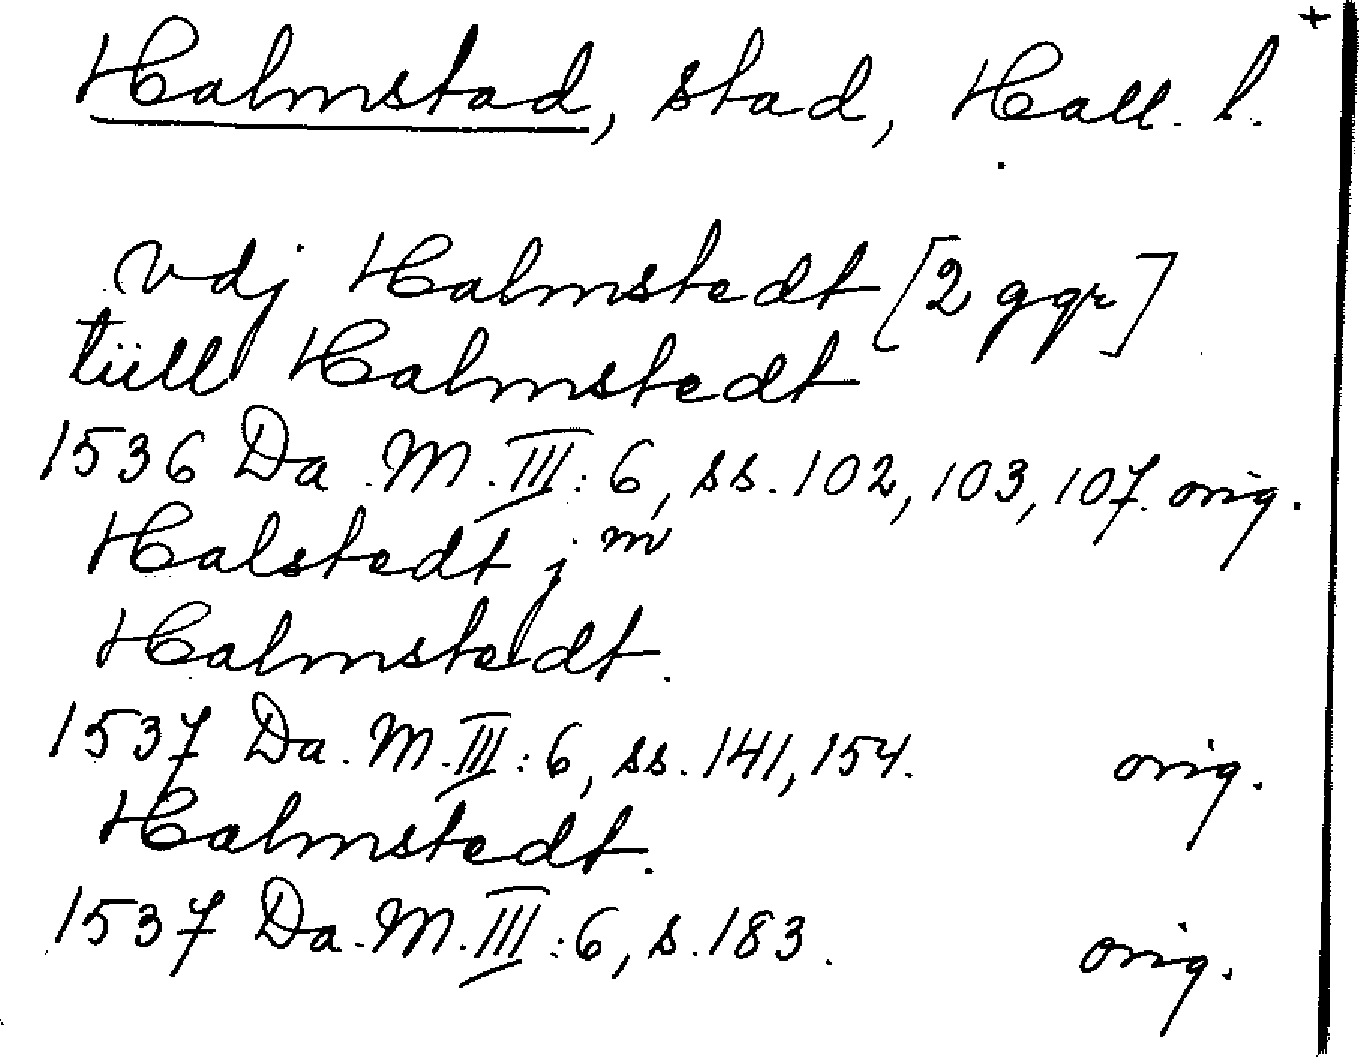 +
Halmstad, stad, Hall. l.
vdj Halmstedt [2 ggr]
tüll Halmstedt
1536 Da. M. III: 6, ss. 102, 103, 107. orig.
Halstedt j m
Halmstedt.
1537 Da. M. III: 6, ss. 141, 154. orig.
Halmstedt.
1537 Da. M. III: 6, s. 183. orig.